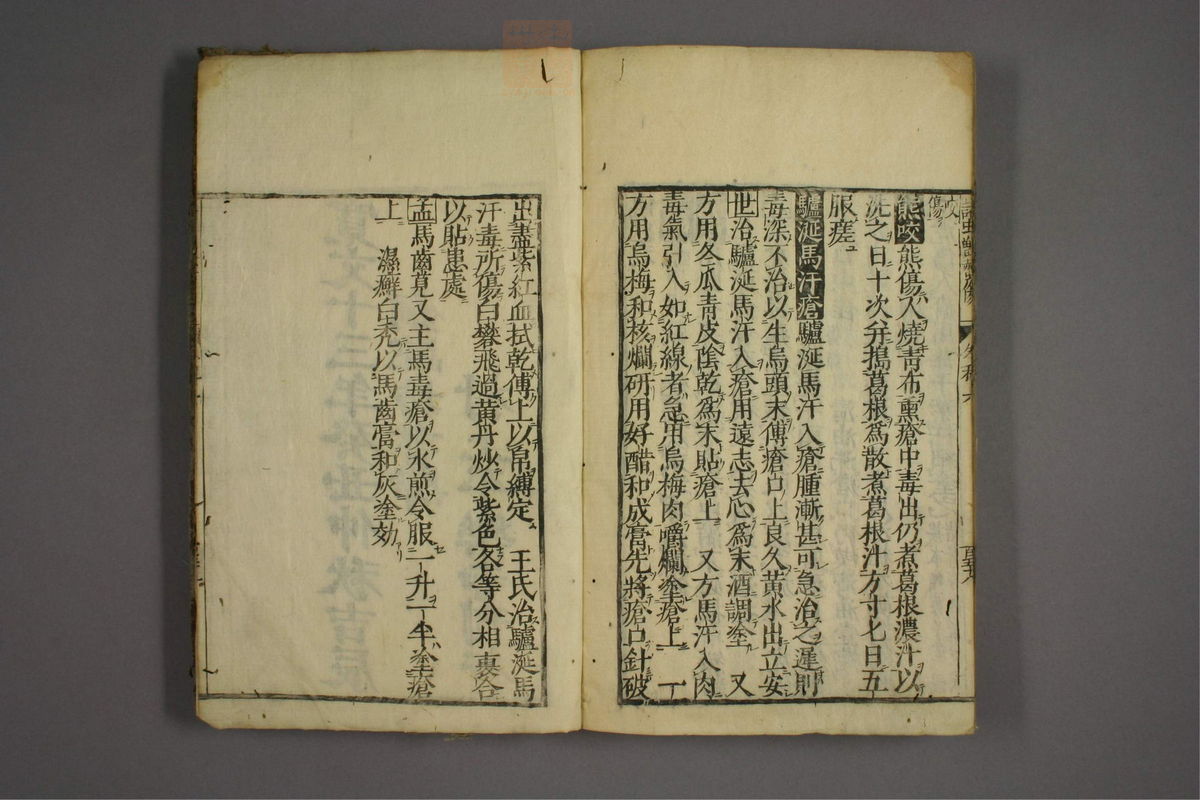 熊咬熊傷人燒青布熏瘡中毒出仍煮葛根濃汁以
洗之日十次并搗葛根爲散煮葛根汁方寸匕日五
服瘥
驢涎馬汗瘡驢涎馬汗入瘡腫漸甚可急治之遲則
毒深不治以生烏頭末傅瘡口上良久黃水出立安
世治驢涎馬汗入瘡用遠志去心爲末酒調塗 又
方用冬瓜青皮陰乾爲末貼瘡上 又方馬汗入肉
毒氣引入如紅線者急用烏梅肉嚼爛塗瘡上 一
方用烏梅和核爛研用好醋和成膏先將瘡口針破
出盡紫紅血拭乾傅上以帛縛定 王氏治驢涎馬
汗毒所傷白礬飛過黃丹炒令紫色各等分相裹合
以貼患處
孟馬齒莧又主馬毒瘡以水煎令服一升一半塗瘡
上 濕癬白禿以馬齒膏和灰塗効